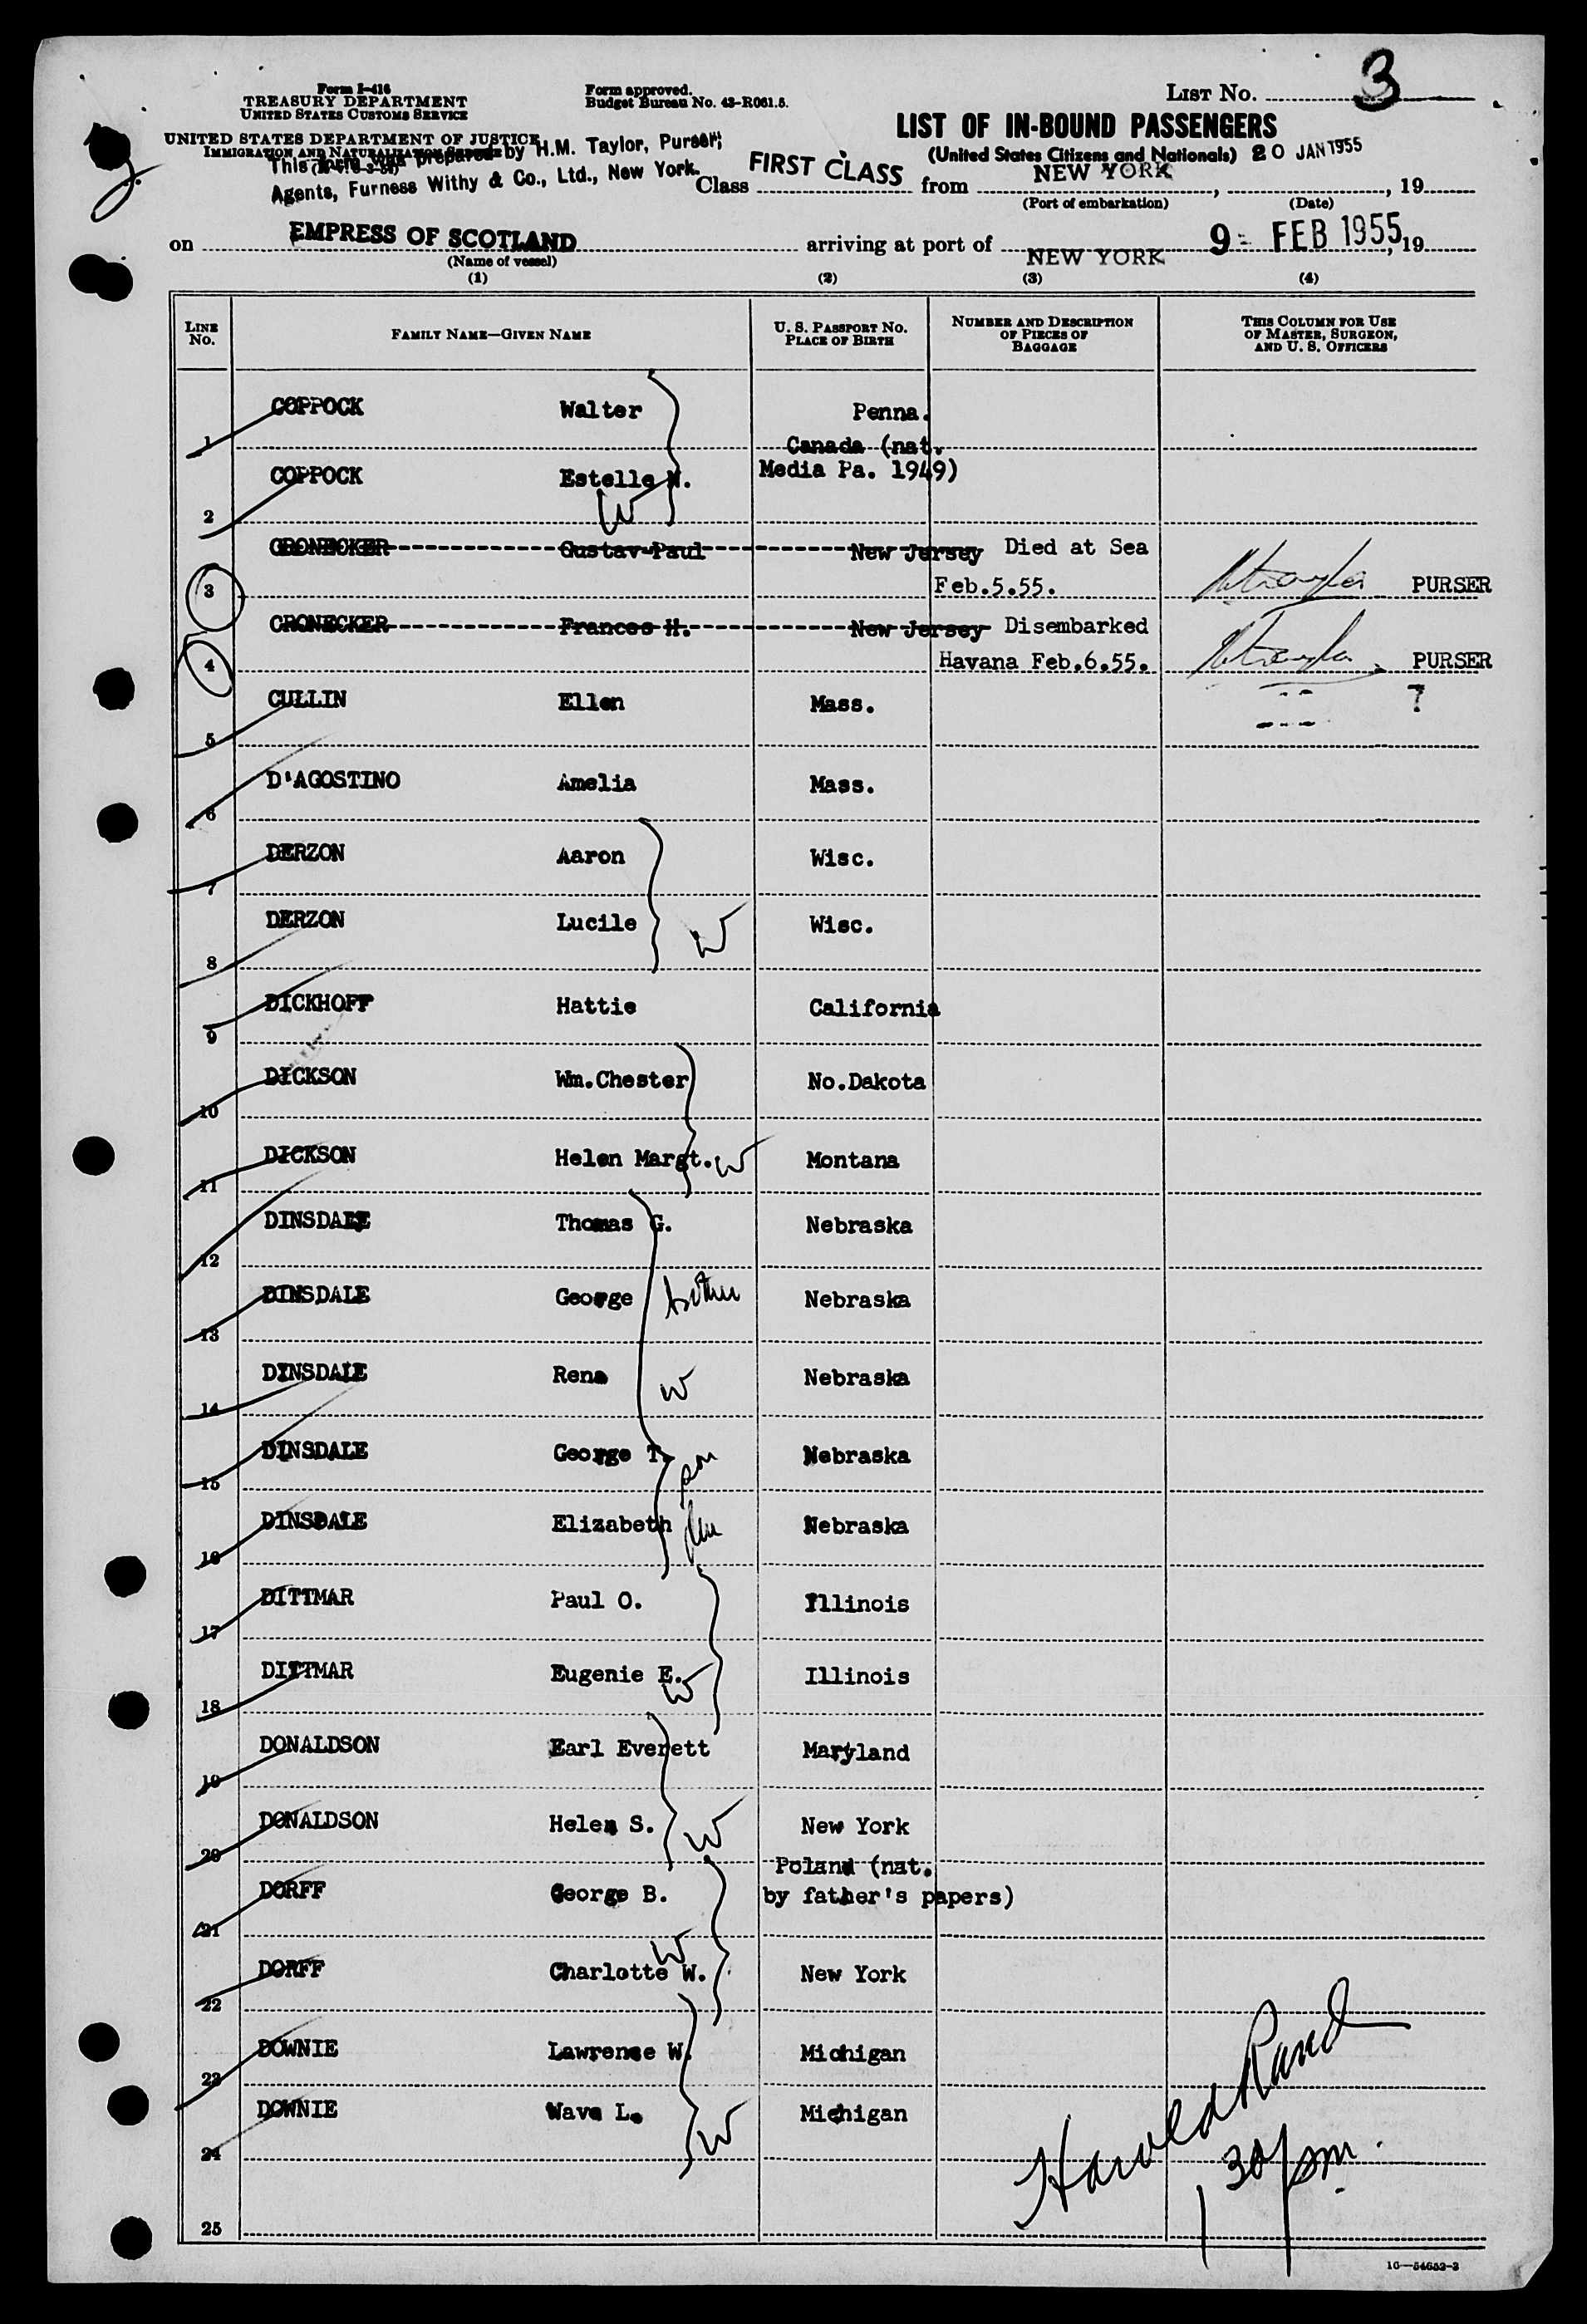 List No. 3
Form I-416
TREASURY DEPARTMENT
United States Customs Service
Form approved.
Budget Bureau No. 43-R081.5.
UNITED STATES DEPARTMENT OF JUSTICE
Immigration and Naturalization Service
This form was prepared by H.M. Taylor, Purser;
Agents, Furness Withy & Co., Ltd., New York.
LIST OF IN-BOUND PASSENGERS
(United States Citizens and Nationals) 20 JAN 1955
Class FIRST CLASS from NEW YORK, , 19
(Port of embarkation) (Date)
on EMPRESS OF SCOTLAND arriving at port of NEW YORK 9 - FEB 1955, 19
(Name of vessel)
(1) (2) (3) (4)
Line No. Family Name—Given Name U. S. Passport No. Place of Birth Number and Description of Pieces of Baggage This Column for Use of Master, Surgeon, and U. S. Officers
1 COPPOCK Walter Penna.
2 COPPOCK Estelle N. W Canada (nat. Media Pa. 1949)
3 CRONECKER Gustav Paul New Jersey Died at Sea Feb.5.55. PURSER
4 CRONECKER Frances H. New Jersey Disembarked Havana Feb.6.55. PURSER
5 CULLIN Ellen Mass. 7
6 D'AGOSTINO Amelia Mass.
7 DERZON Aaron Wisc.
8 DERZON Lucile W Wisc.
9 DICKHOFF Hattie California
10 DICKSON Wm.Chester No.Dakota
11 DICKSON Helen Margt. W Montana
12 DINSDALE Thomas G. Nebraska
13 DINSDALE George Nebraska
14 DINSDALE Rena W Nebraska
15 DINSDALE George T. son Nebraska
16 DINSDALE Elizabeth Nebraska
17 DITTMAR Paul O. Illinois
18 DITTMAR Eugenie E. W Illinois
19 DONALDSON Earl Everett Maryland
20 DONALDSON Helen S. W New York
21 DORFF George B. Poland (nat. by father's papers)
22 DORFF Charlotte W. W New York
23 DOWNIE Lawrence W. Michigan
24 DOWNIE Wava L. W Michigan
25
Harold Rand
1 30 pm.
16—54652-3